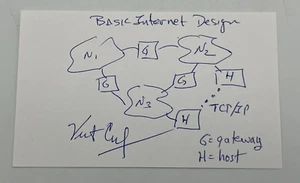 BASIC INTERNET DESIGN
N1 G N2
G G H
N3 TCP/IP
H
Vint Cerf
G = gateway
H = host